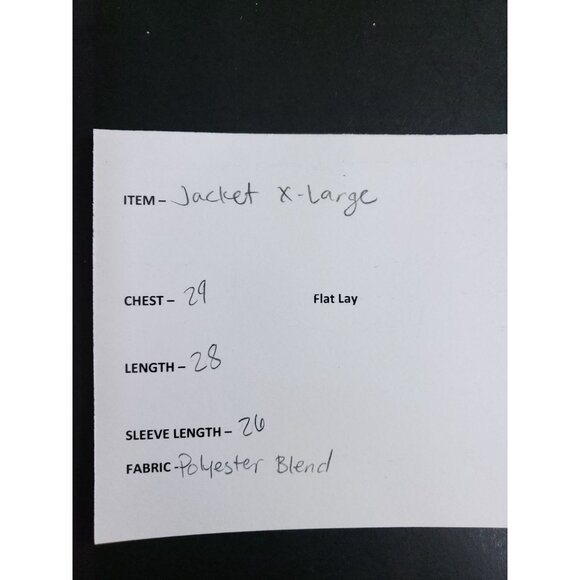 ITEM – Jacket X-Large
CHEST – 29 Flat Lay
LENGTH – 28
SLEEVE LENGTH – 26
FABRIC - Polyester Blend